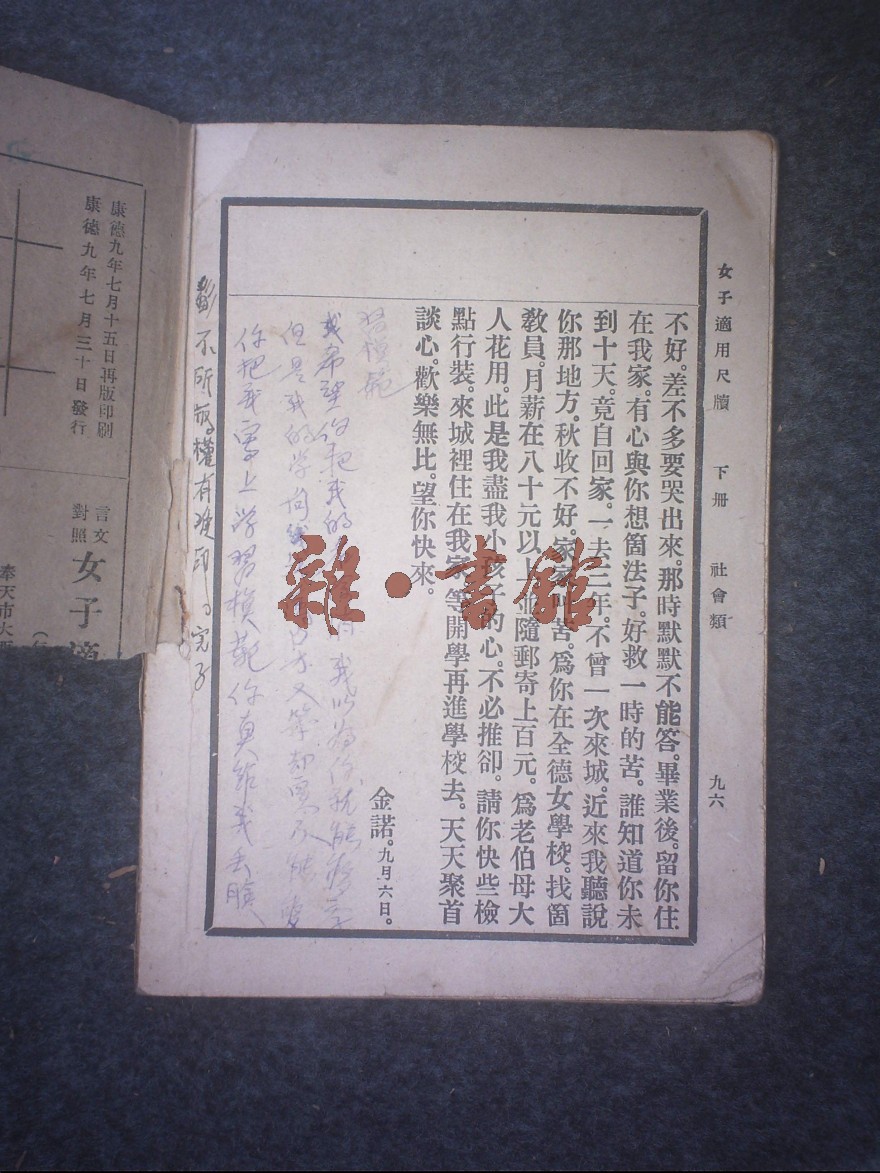 女子適用尺牘 下册 社會類 九六
不好。差不多要哭出來。那時默默不能答。畢業後。留你住
在我家。有心與你想箇法子。好救一時的苦。誰知道你未
到十天。竟自回家。一去三年。不曾一次來城。近來我聽說
你那地方。秋收不好。家家叫苦。爲你在全德女學校。找箇
教員。月薪在八十元以上。並隨郵寄上百元。爲老伯母大
人花用。此是我盡我小孩子的心。不必推卻。請你快些檢
點行裝。來城裡住在我家。等開學再進學校去。天天聚首
談心。歡樂無比。望你快來。
金諾。九月六日。
我希望你把我的 我以爲你就能
但是我的学问 又笨却
你把我 上学習模範你真给我丢臉
不所 權有 印
康德九年七月十五日再版印刷
康德九年七月三十日發行
言文
對照
女子適
奉天市大
雜·書館